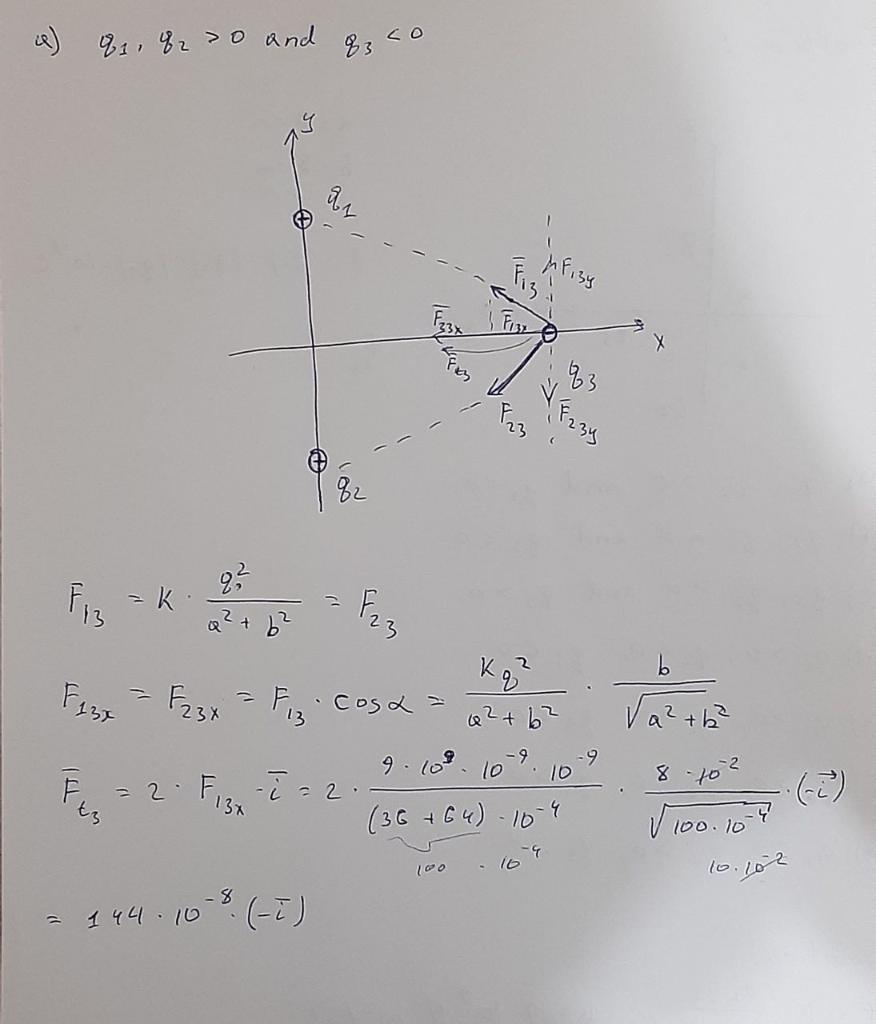 a) q₁, q₂ > 0 and q₃ < 0
y
q₁
F̄₁₃
F₁₃y
F̄₃₃ₓ
F̄₁₃ₓ
x
F̄t₃
q₃
F₂₃
F̄₂₃y
q₂
F̄₁₃ = K · q²/(a² + b²) = F₂₃
F₁₃ₓ = F₂₃ₓ = F₁₃ · cos α = Kq²/(a² + b²) · b/√(a² + b²)
F̄t₃ = 2 · F₁₃ₓ · -ī = 2 · (9 · 10⁹ · 10⁻⁹ · 10⁻⁹)/((36 + 64) · 10⁻⁴) · (8 · 10⁻²)/√(100 · 10⁻⁴) · (-i⃗)
100 · 10⁻⁴
10 · 10⁻²
= 144 · 10⁻⁸ · (-ī)